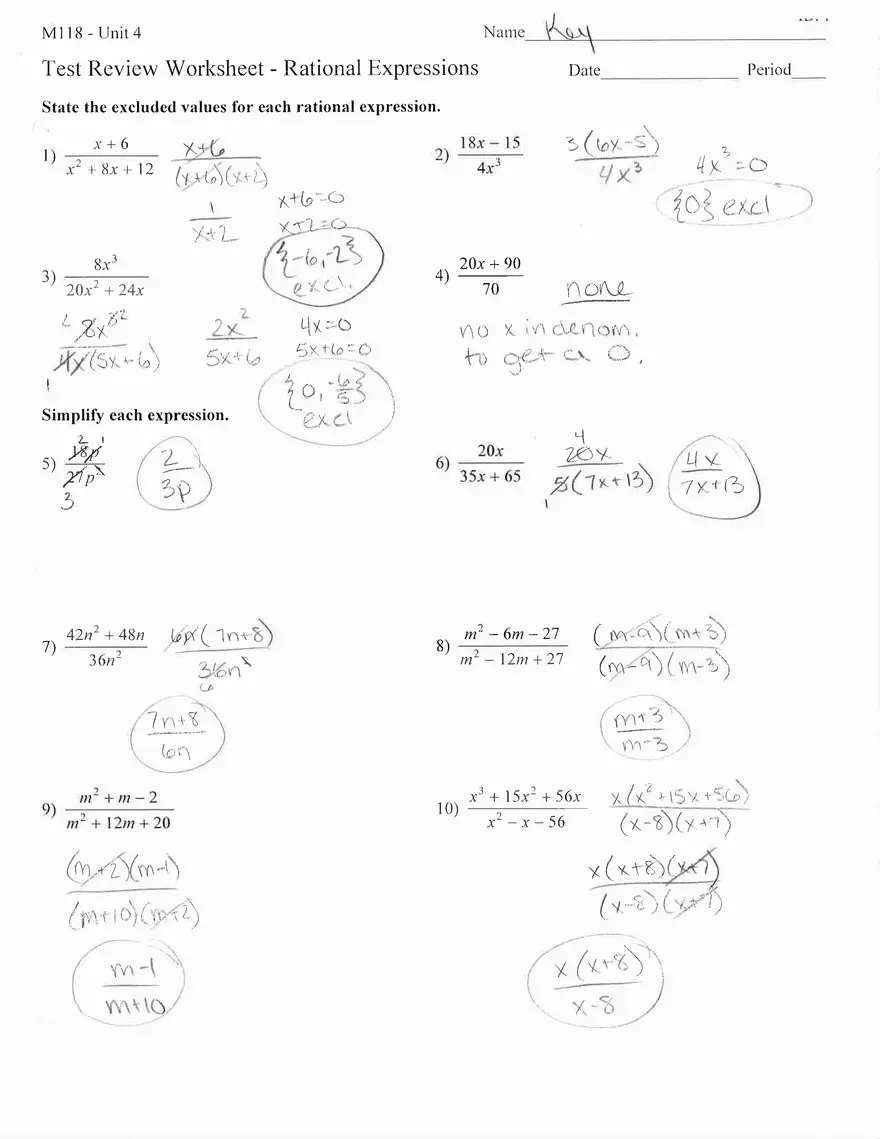 M118 - Unit 4
Name Key
Test Review Worksheet - Rational Expressions
Date Period
State the excluded values for each rational expression.
1) (x + 6)/(x² + 8x + 12)
(x+6)/((x+6)(x+2))
1/(x+2)
x+6=0
x+2=0
{-6,-2}
excl.
2) (18x − 15)/(4x³)
3(6x-5)/(4x³)
4x³=0
{0} excl
3) (8x³)/(20x² + 24x)
2 8x³ 2
4x(5x+6)
1
2x²/(5x+6)
4x=0
5x+6=0
{0, -6/5}
excl
4) (20x + 90)/70
none
no x in denom.
to get a 0.
Simplify each expression.
5) 18p/27p²
2 1
3
2/3p
6) 20x/(35x + 65)
4
20x/(5(7x+13))
1
4x/(7x+13)
7) (42n² + 48n)/(36n²)
6n(7n+8)/(36n²)
6
(7n+8)/6n
8) (m² − 6m − 27)/(m² − 12m + 27)
(m-9)(m+3)/((m-9)(m-3))
(m+3)/(m-3)
9) (m² + m − 2)/(m² + 12m + 20)
(m+2)(m-1)/((m+10)(m+2))
(m-1)/(m+10)
10) (x³ + 15x² + 56x)/(x² − x − 56)
x(x²+15x+56)/((x-8)(x+7))
x(x+8)(x+7)/((x-8)(x+7))
x(x+8)/(x-8)